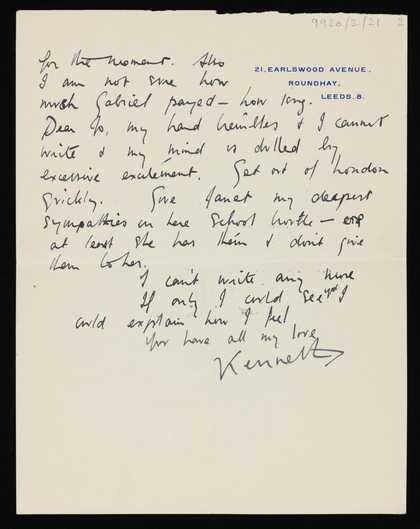 9920/2/21 2
for the moment. Also
21, EARLSWOOD AVENUE,
ROUNDHAY,
LEEDS. 8.
I am not sure how
much Gabriel payed – how long.
Dear Jo, my hand trembles & I cannot
write & my mind is dulled by
excessive excitement. Get out of London
quickly. Give Janet my deepest
sympathies in here School hostle –
at least she has them & don't give
them to her.
I can't write any more
If only I could see you I
could explain how I feel
You have all my love
Kenneth